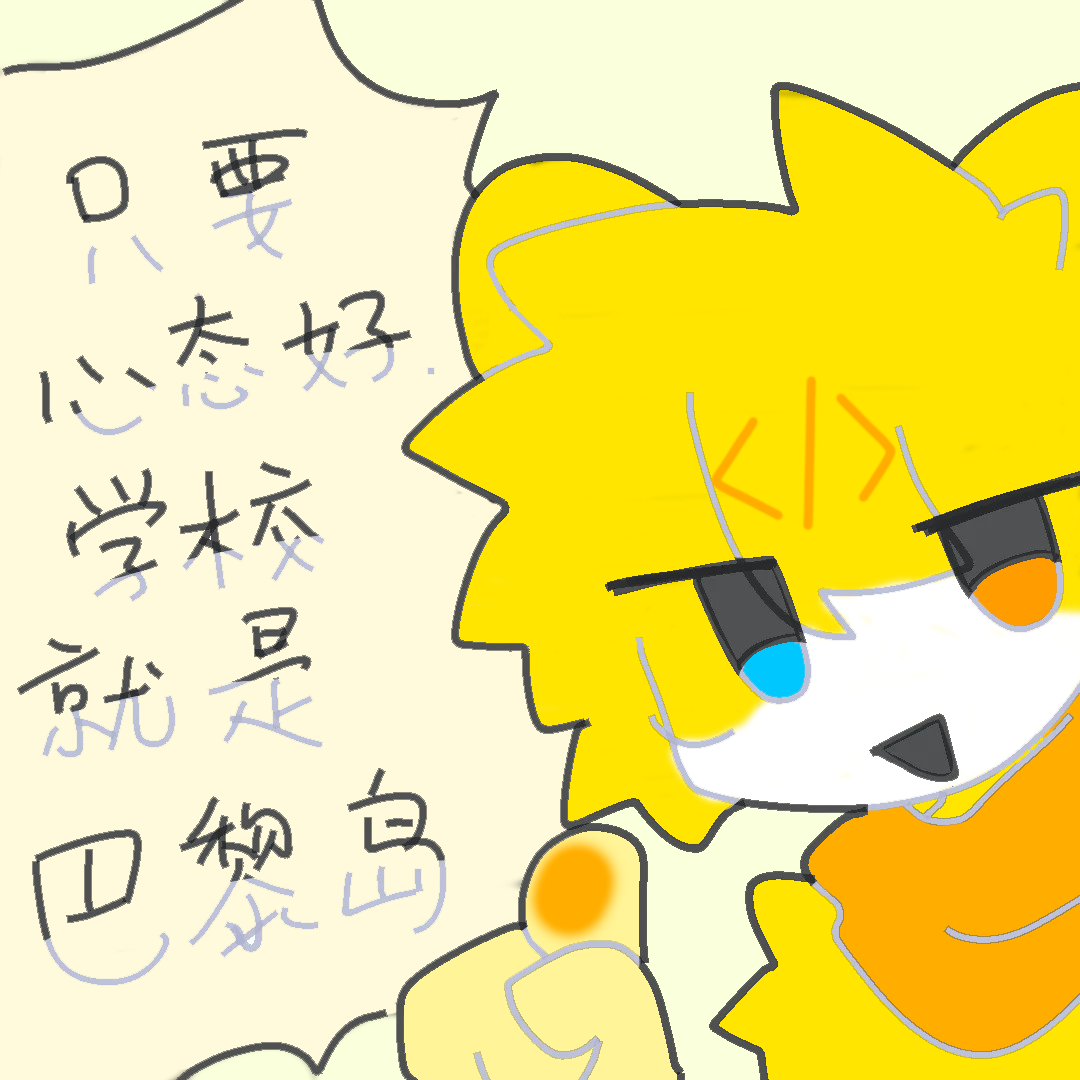 只要
心态好.
学校
就是
巴黎岛
</›